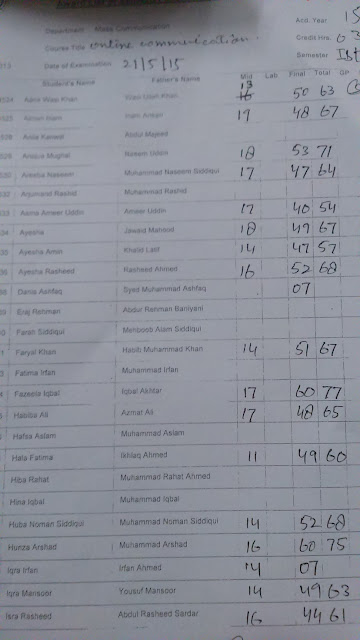 Acd. Year 15
Department Mass Communication
Credit Hrs. 03
Course Title online communication.
Semester Ist
Date of Examination 21/5/15
Student's Name Father's Name Mid Lab. Final Total GP
13 16 50 63
Aizah Islam Islam Ansari 19 48 67
Anila Kanwal Abdul Majeed
Mughal Naseem Uddin 18 53 71
Areeba Naseem Muhammad Naseem Siddiqui 17 47 64
Arjumand Rashid Muhammad Rashid
Asma Ameer Uddin Ameer Uddin 17 40 54
Ayesha Jawaid Mahmod 18 49 67
Ayesha Amin Khalid Latif 14 47 57
Ayesha Rasheed Rasheed Ahmed 16 52 68
Dania Ashfaq Syed Muhammad Ashfaq 07
Eraj Rehman Abdur Rehman Baniyani
Farah Siddiqui Mehboob Alam Siddiqui
Faryal Khan Habib Muhammad Khan 14 51 67
Fatima Irfan Muhammad Irfan
Fazeela Iqbal Iqbal Akhtar 17 60 77
Habiba Ali Azmar Ali 17 48 65
Hafsa Aslam Muhammad Aslam
Hala Fatima Ikhlaq Ahmed 11 49 60
Hiba Rahat Muhammad Rahat Ahmed
Hina Iqbal Muhammad Iqbal
Huba Noman Siddiqui Muhammad Noman Siddiqui 14 52 68
Hunza Arshad Muhammad Arshad 16 60 75
Iqra Irfan Irfan Ahmed 14 07
Iqra Mansoor Yousuf Mansoor 14 49 63
Isra Rasheed Abdul Rasheed Sardar 16 44 61